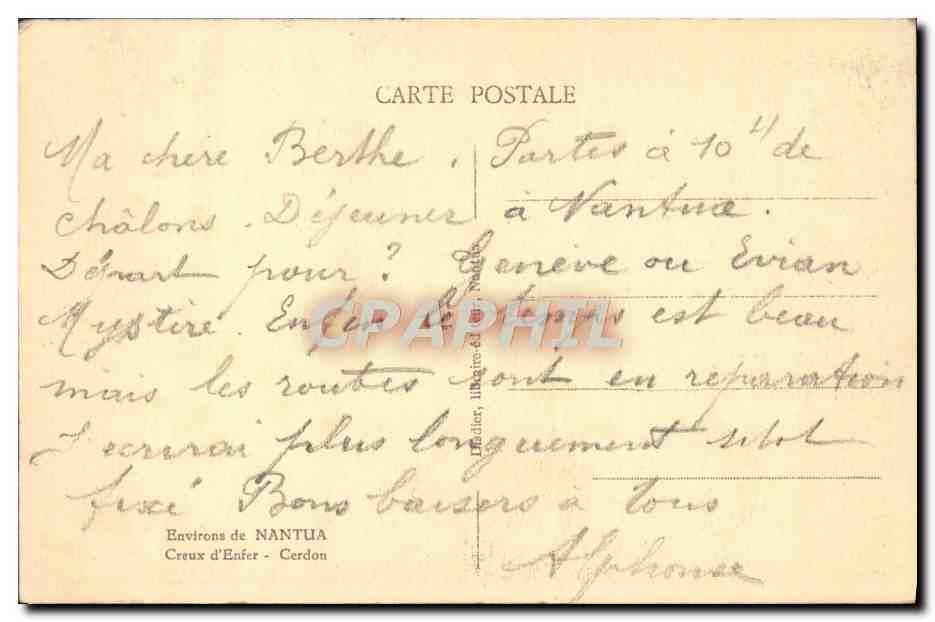 CARTE POSTALE
Ma chere Berthe. Partis à 10 H de
châlons. Déjeuner à Nantua.
Départ pour? Genève ou Evian
Mystère. Enfin le temps est beau
mais les routes sont en reparation
J'ecrirai plus longuement sitot
fixé Bons baisers à tous
Alphonse
Environs de NANTUA
Creux d'Enfer - Cerdon
libraire-éditeur, Nantua
CPAPHIL